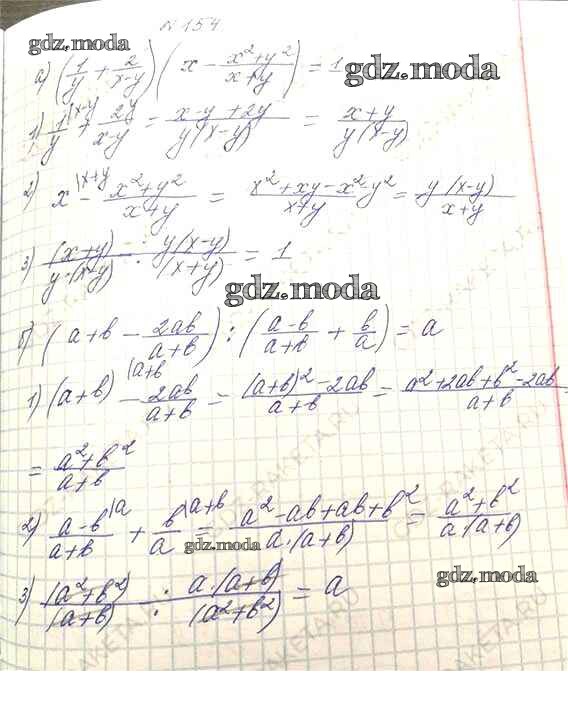 №154
gdz.moda
а) (1/y + 2/(x-y)) (x - (x²+y²)/(x+y)) = 1
gdz.moda
1) 1/y |x-y + 2y/(x-y) = (x-y+2y)/(y(x-y)) = (x+y)/(y(x-y))
2) x |x+y - (x²+y²)/(x+y) = (x²+xy-x²-y²)/(x+y) = y(x-y)/(x+y)
3) (x+y)/(y·(x-y)) : y(x-y)/(x+y) = 1
gdz.moda
б) (a+b - 2ab/(a+b)) : ((a-b)/(a+b) + b/a) = a
1) (a+b) |a+b - 2ab/(a+b) = ((a+b)²-2ab)/(a+b) = (a²+2ab+b²-2ab)/(a+b) =
= (a²+b²)/(a+b)
2) (a-b)/(a+b) |a + b/a |a+b = (a²-ab+ab+b²)/(a·(a+b)) = (a²+b²)/(a·(a+b))
gdz.moda
gdz.moda
3) (a²+b²)/(a+b) : a·(a+b)/(a²+b²) = a